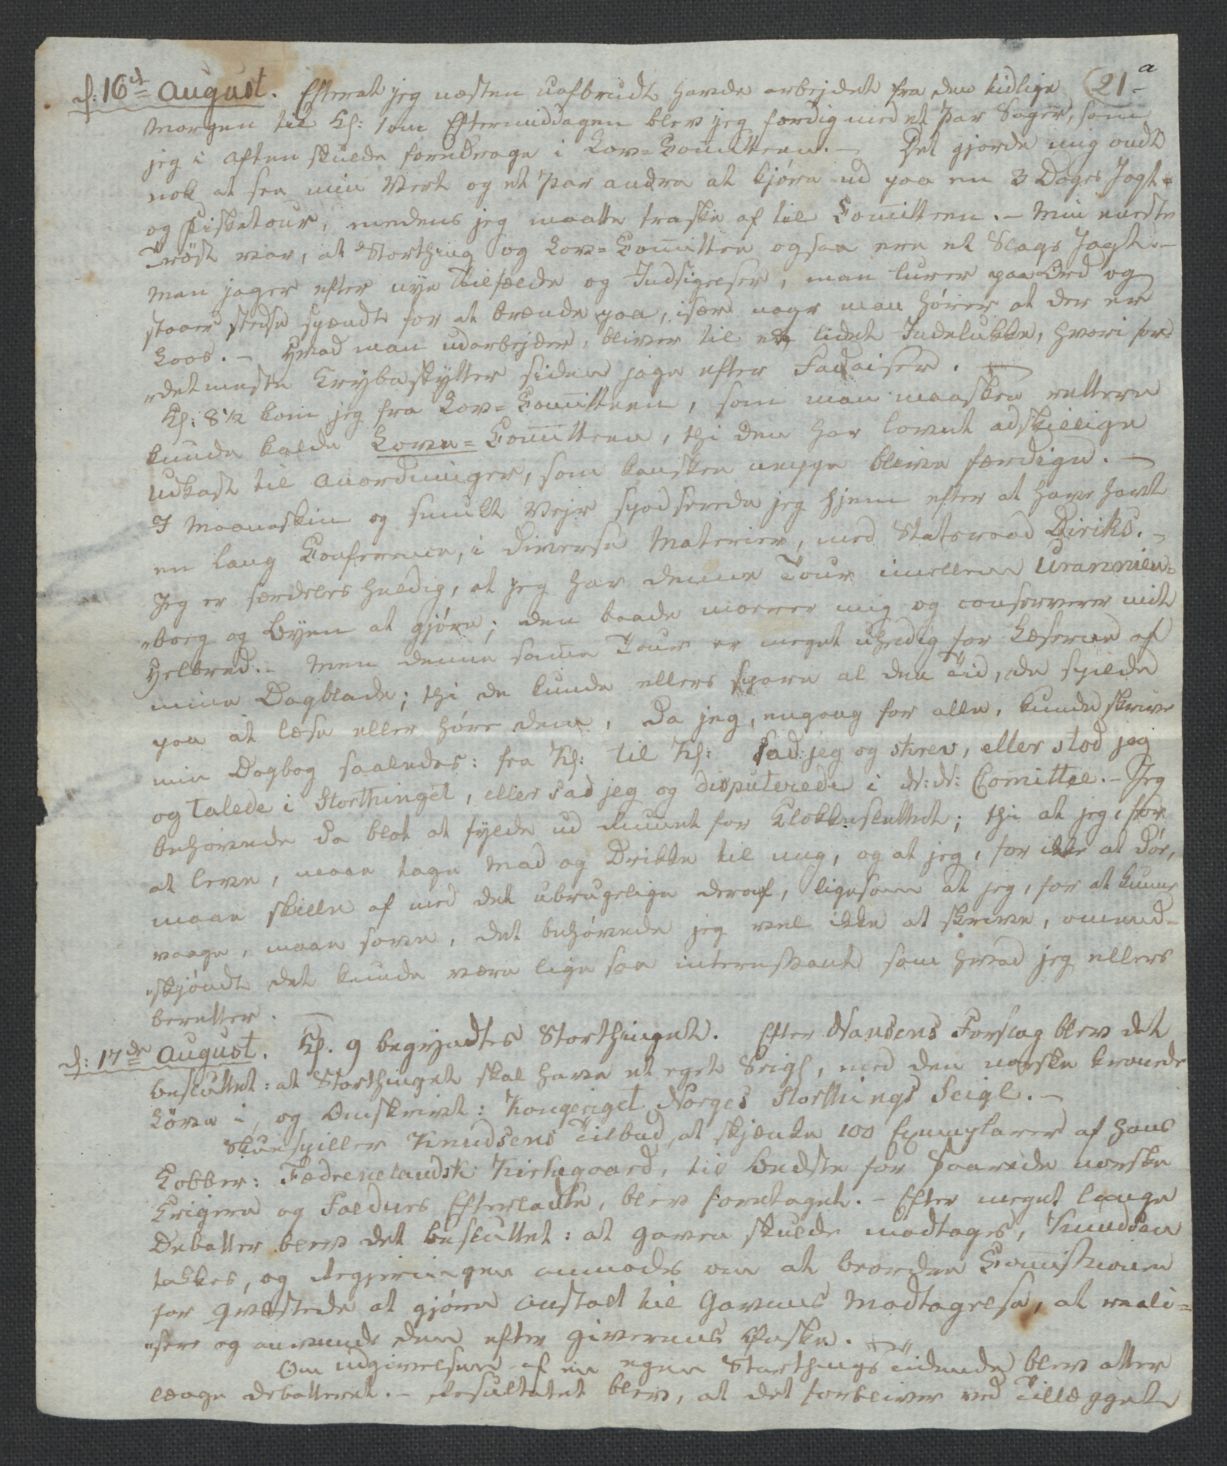 d: 16d August. Efterat jeg næsten uafbrudt havde arbejdet fra den tidlige (21-a
Morgen til Kl: 1 om Eftermiddagen blev jeg færdig med et Par Sager, som
jeg i Aften skulde foredrage i Lov=Comitteen. — Det gjorde mig ondt
nok at see min Vert og et Par andre at kjøre ud paa en 3 Dages Jagt=
og Fisketour, medens jeg maatte traske af til Comitteen. — Min eneste
Trøst var, at Storthing og Lov=Comitteen ogsaa ere et Slags Jagt. —
Man jager efter nye Tilfælde og Indsigelser, man lurer paa Ord og
staaer stedse spændt for at brænde paa, især naar man hører at der er
Loos. — Hvad man udarbejder, bliver til et lidet Indelukke, hvori for
detmeste Krybeskytter siden jage efter Fadaiser. —
Kl: 8 1/2 kom jeg fra Lov=Comitteen, som man maaskee rettere
kunde kalde Love=Comitteen, thi den har lovet adskillige
Udkast til Anordninger, som kanskee neppe blive færdige. —
I Maaneskin og smukt Vejr spadserede jeg hjem efter at have havt
en lang Conference, i diverse Materier, med Statsraad Diriks. —
Jeg er særdeles heldig, at jeg har denne Tour imellem Uranien=
"borg og Byen at gjøre; den baade morer mig og conserverer mit
Helbred. — Men denne samme Tour er meget uheldig for Læserne af
mine Dagblade; thi de kunde ellers spare al den Tid, de spilde
paa at læse eller høre dem, da jeg, engang for alle, kunde skrive
min Dagbog saaledes: fra Kl: til Kl: sad jeg og skrev, eller stod jeg
og talede i Storthinget, eller sad jeg og disputerede i dr: dr: Comittee. — Jeg
behøvede da blot at fylde ud Rummet for Klokkeslettet; thi at jeg, for
at leve, maae tage Mad og Drikke til mig, og at jeg, for ikke at døe,
maae skille af med det ubrugelige deraf, ligesom at jeg, for at kunne
vaage, maae sove, det behøvede jeg vel ikke at skrive, omend=
"skjøndt det kunde være lige saa interessant som hvad jeg ellers
beretter. —
d: 17de August. Kl. 9 begyndtes Storthinget. Efter Nansens Forslag blev det
besluttet: at Storthinget skal have et eget Seigl, med den norske kronede
Løve i, og Omskrivt: Kongeriget Norges Storthings Seigl. —
Skuespiller Knudsens Tilbud, at skjænke 100 Exemplarer af hans
Kobber: Fædrenelandsk Kirkegaard, til Bedste for saarede norske
Krigere og Faldnes Efterladte, blev foretaget. — Efter meget lange
Debatter blev det besluttet: at Gaven skulde modtages, Knudsen
takkes, og Regjeringen anmodes om at beordre Commissionen
for Qvæstede at gjøre Anstalt til Gavens Modtagelse, at reali=
"sere og anvende den efter Giverens Ønske. —
Om Udgivelsen af en egen Storthings Tidende blev atter
længe debatteret. — Resultatet blev, at det forbliver ved Tillægget